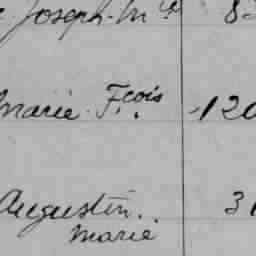 Joseph-M
Marie Fcois 120
Augustin.. 31
Marie